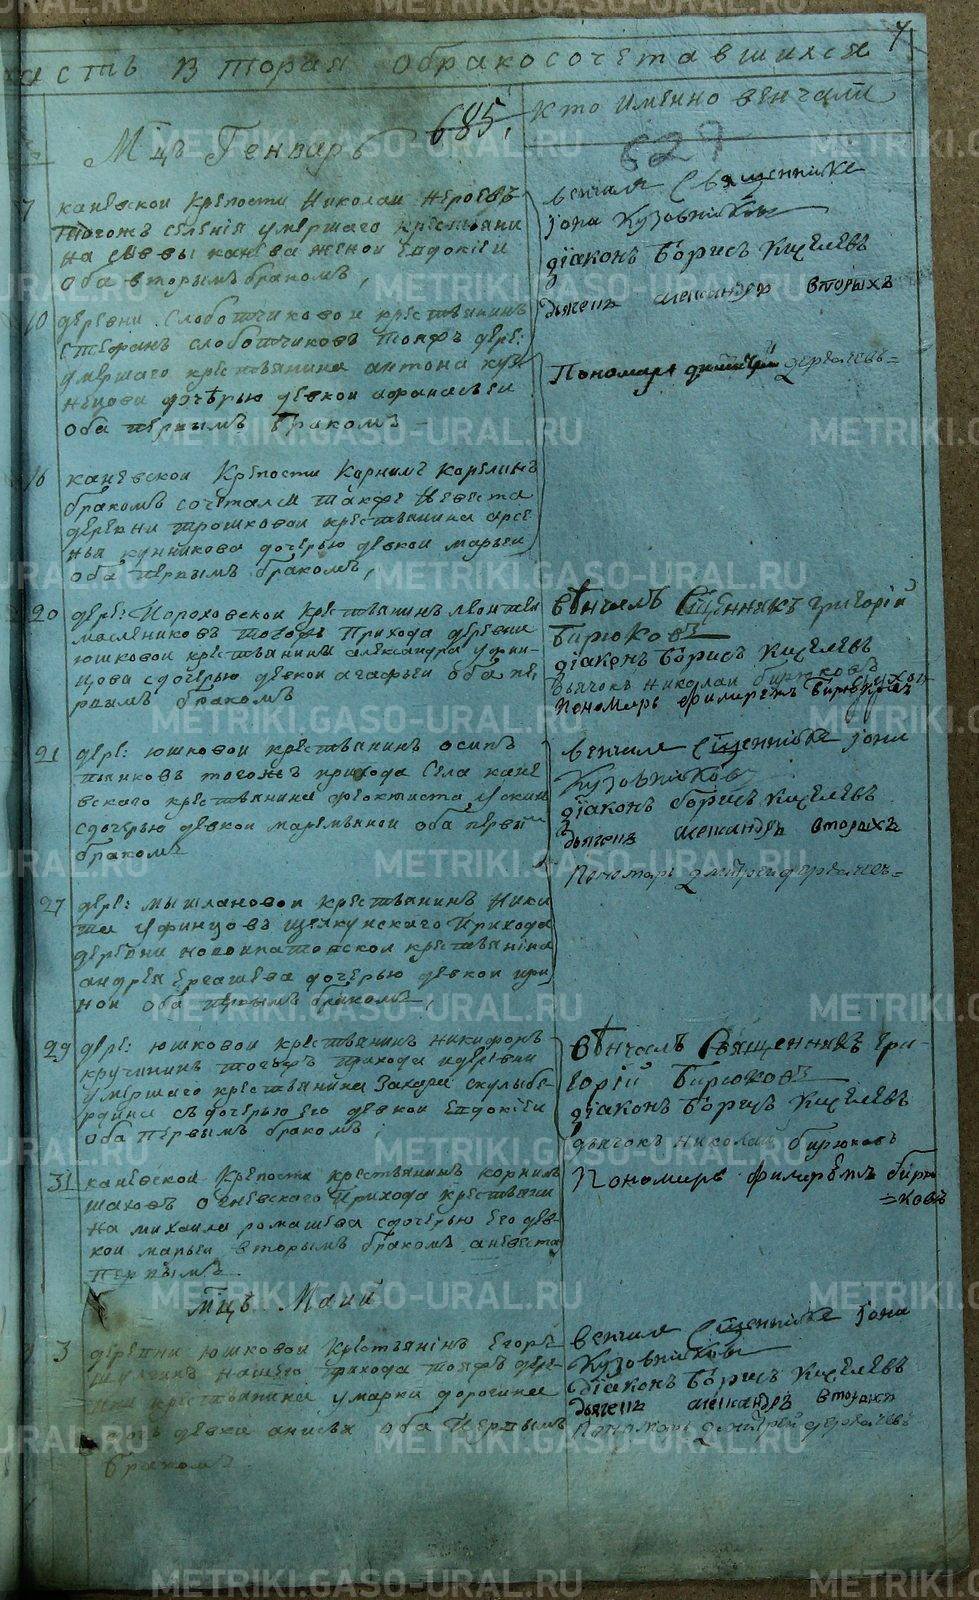 часть вторая обракосочетавшихся
7
Кто имянно венчали
685.
629
Мцъ Генварь
7
каневской крепости Николай
тогож селения умершаго крестьяни
на Саввы канева женой Евдокиеи
оба вторымъ бракомъ,
венчали Священнике
Іона Кузовниковъ
діаконъ Борисъ Киселевъ
дьячекъ александръ вторыхъ
Пономаръ димитрій дерґачевъ=
10
деревни Слоботчиковой крестьянинъ
Стефанъ слоботчиковъ тояжъ дере:
умершаго крестьянина антона куз
нецова дочерью девкой афанасьеи
оба первымъ бракомъ
16
каневской крепости Корнилъ Корелинъ
бракомъ сочетался также невеста
деревни трошковой крестьянина арсе
нья кунникова дочерью девкой марьеи
оба первымъ бракомъ,
20
дере: Пороховской крестьянинъ леонтеи
масленниковъ тогожъ Прихода деревни
юшковой крестьянина александра уфин-
цова сдочерью девкой агафьеи оба пе,
рвымъ бракомъ
вѣнчалъ Сщенникъ григорій
Бирюковъ
діаконъ Борисъ Киселевъ
Дьячокъ Николай бирюковъ
Пономарь филаретъ Бирюковъ
21
дере: юшковой крестьянинъ осипъ
пьянковъ тогожъ прихода Села кане
вского крестьянина феоктиста
сдочерью девкой маремьяной оба первы
бракомъ
венчали Сщеннике Іона
Кузовниковъ
діаконъ борисъ Киселевъ
дьячекъ александръ вторыхъ
Пономаръ дмитрей дерґачевъ=
27
дере: мышлановой крестьянинъ Ники
та уфинцовъ щелкунскаго Прихода
деревни новоипатовской крестьянина
андрея Ергашева дочерью девкой ири
ной оба первымъ бракомъ,
29
дере: юшковой крестьянинъ никифоръ
кручининъ тогожъ прихода идеревни
умершаго крестьянина Захара скулыбе
рдина съдочерью его девкой Евдокиеи
оба первымъ бракомъ,
вѣнчалъ Священникъ гри-
горій Бирюковъ
діаконъ Борисъ Киселевъ
дьячокъ николай бирюковъ
Пономарь филаретъ бирю
=ковъ
31
каневской крепости крестьянинъ корнилъ
шаховъ огневского прихода крестьяни
на михаила ромашева сдочерью его дев-
кой марьеи вторымъ бракомъ аневеста
первымъ
Мцъ Маий
3
деревни юшковой крестьянинъ Егоръ
нашего прихода тояжъ дере
вни крестьянина умарка дорогина
дочь девка анисья оба первымъ
бракомъ
венчали Сщеннике Іона
Кузовниковъ
діаконъ Борисъ Киселевъ
дьячекъ александръ вторыхъ
Пономаръ дмитрей дерґачевъ